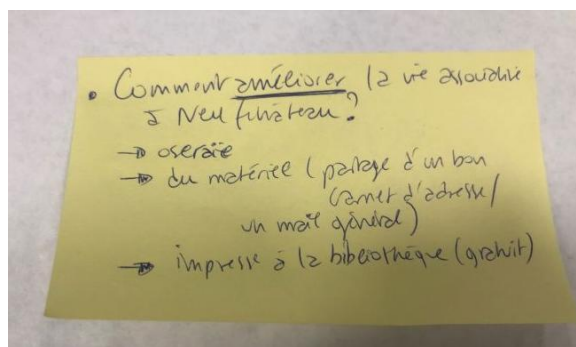 • Comment améliorer la vie associative
à Neufchâteau ?
→ oseraie
→ du matériel (partage d'un bon
carnet d'adresse/
un mail général)
→ impress à la bibliothèque (gratuit)